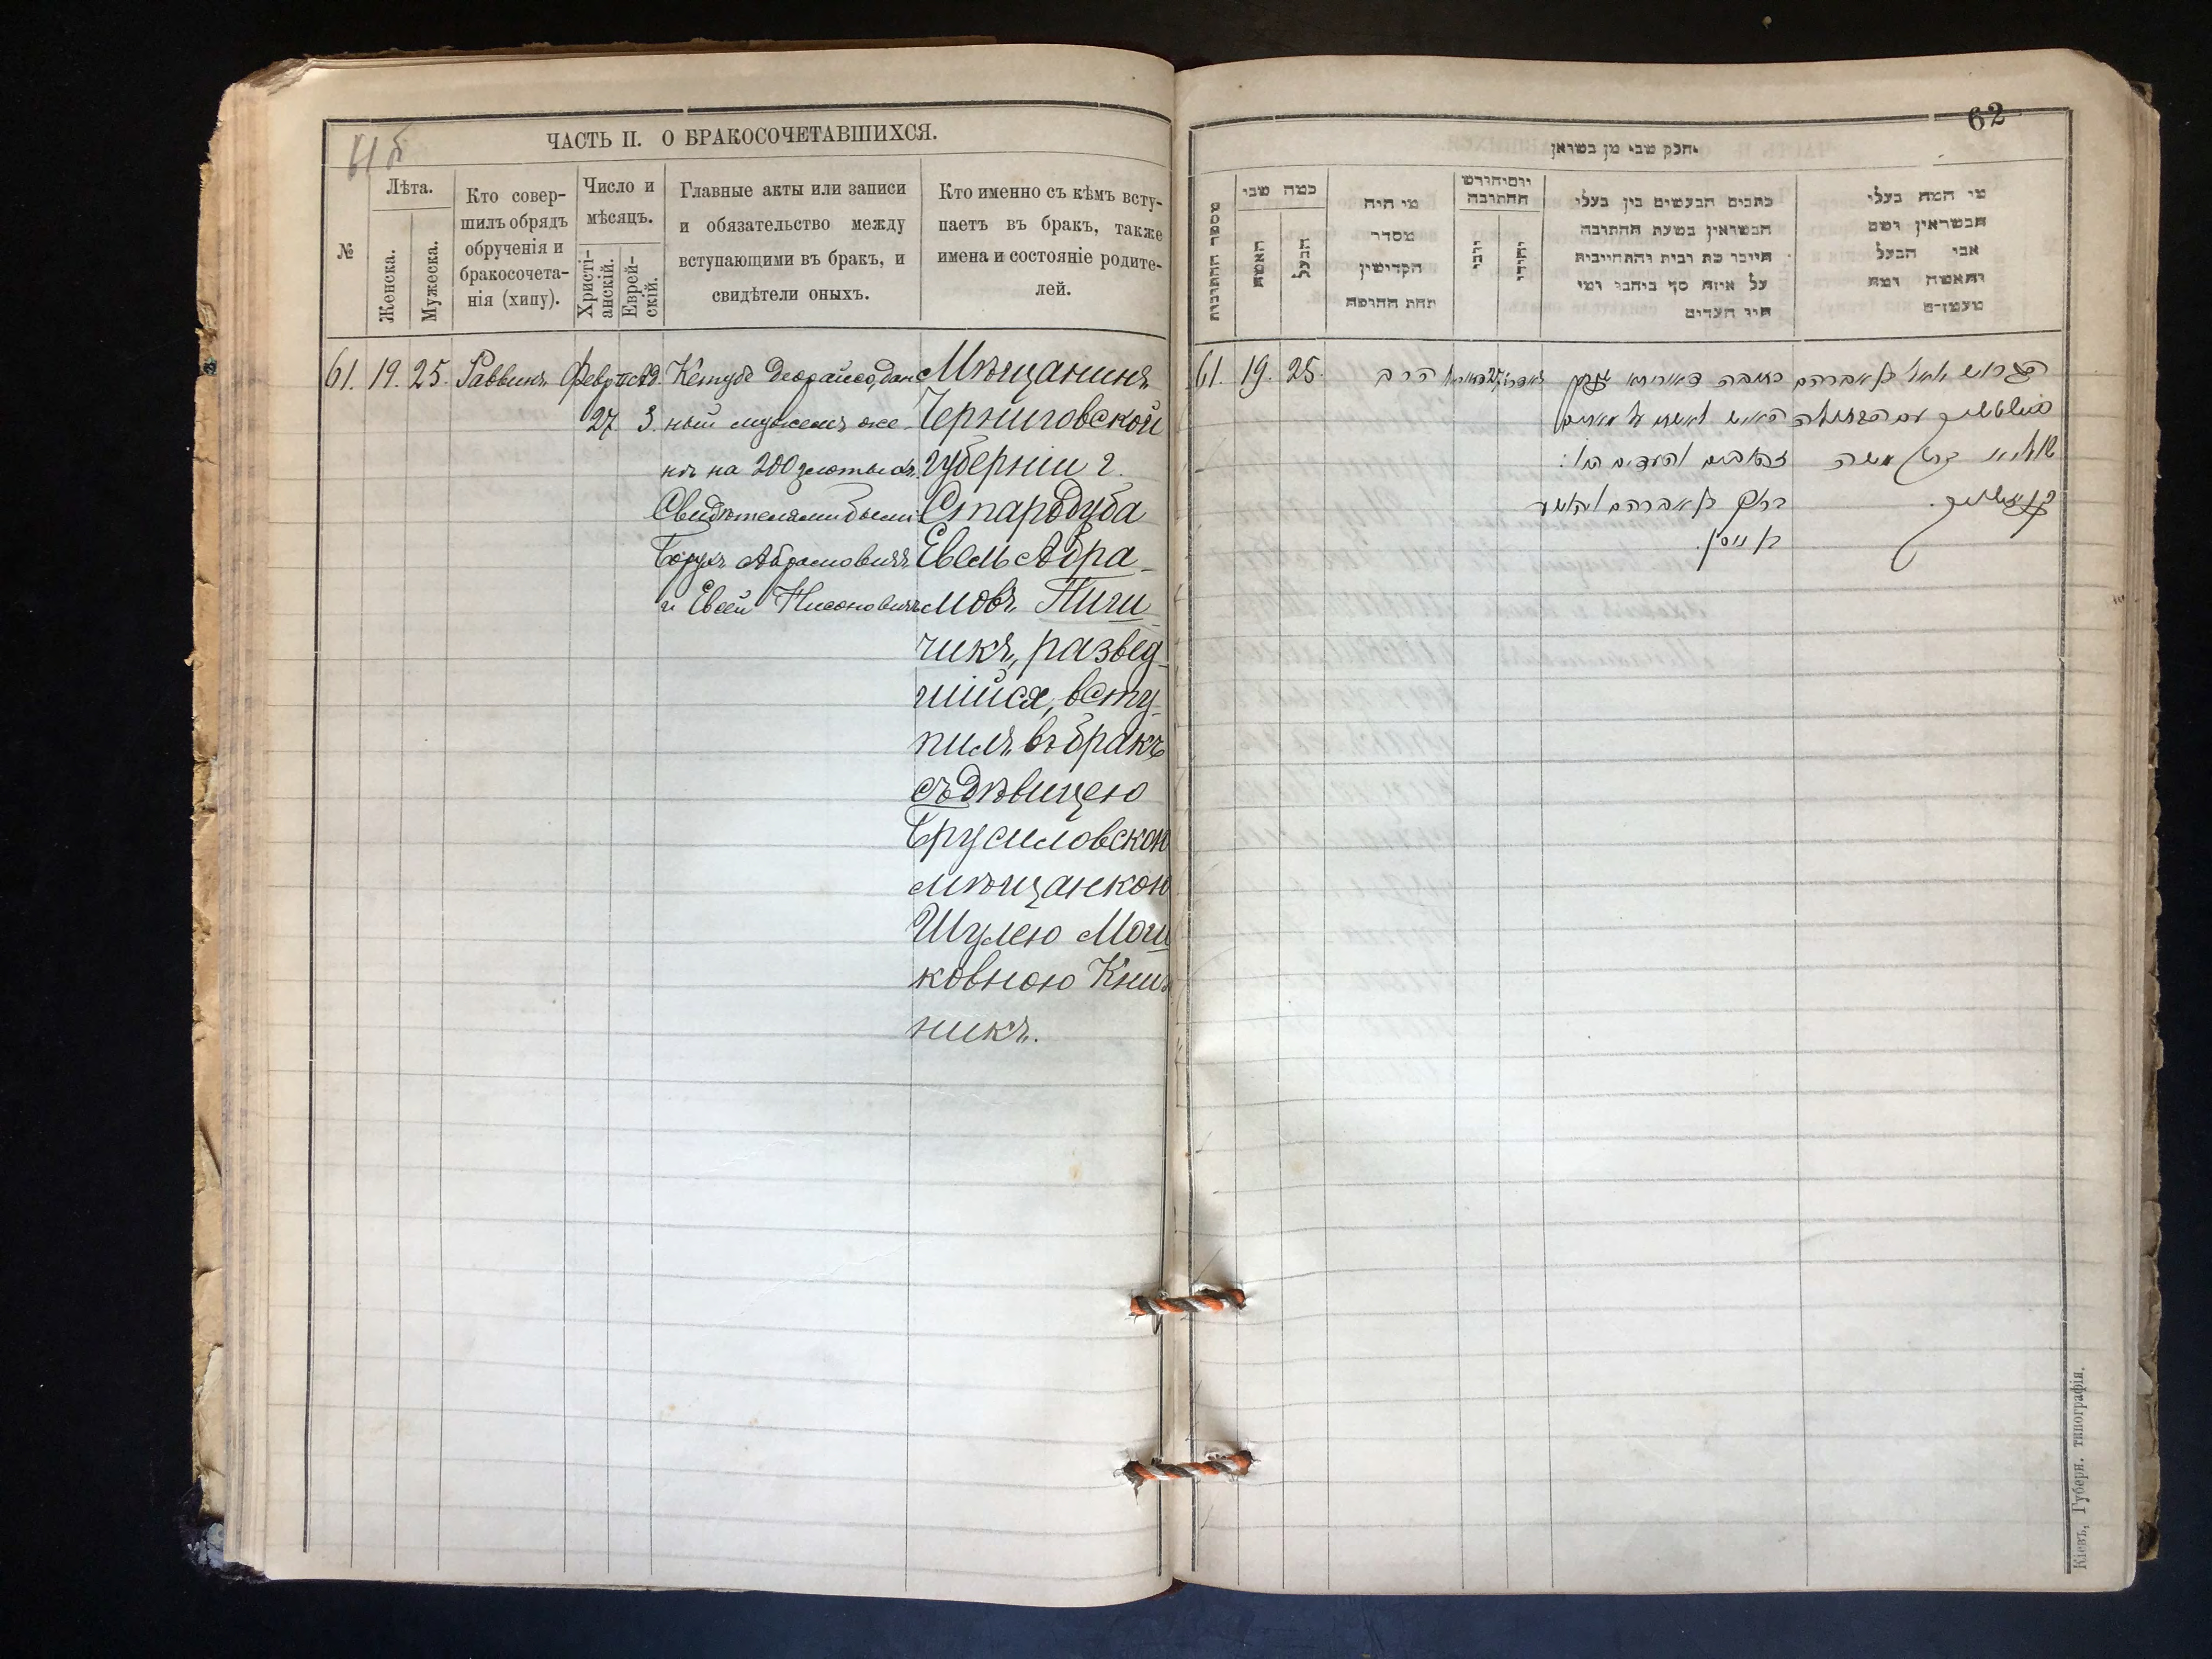 61 б
ЧАСТЬ II. О БРАКОСОЧЕТАВШИХСЯ.
№
Лѣта.
Женска.
Мужеска.
Кто совер-
шилъ обрядъ
обрученія и
бракосочета-
нія (хипу).
Число и
мѣсяцъ.
Христі-
анскій.
Еврей-
скій.
Главные акты или записи
и обязательство между
вступающими въ бракъ, и
свидѣтели оныхъ.
Кто именно съ кѣмъ всту-
паетъ въ бракъ, также
имена и состояніе родите-
лей.
61. 19. 25. Раввинъ
Февр.
27 3.
Кетубе Деорайсо, дан-
ный мужемъ же-
нѣ на 200 злотыхъ.
Свидѣтелями были
Борухъ Абрамовичъ
и Евсей Нисоновичъ
Мѣщанинъ
Черниговской
губерніи г.
Стародуба
Евель Абра-
мовъ
чикъ, развед-
шійся, всту-
пилъ въ бракъ
съ дѣвицею
Брусиловскою
мѣщанкою
Шулею Мош-
ковною Книж-
никъ.
62
וחלק שבי מן בשואן
מספר החתונות
כמה שבי
האשה
הבעל
מי היה
מסדר
הקדישין
תחת החופה
יום וחודש
החתונה
נוצרי
יהודי
כתבים הנעשים בין בעלי
הנשואין בשעת החתונה
חיובי כת ובית והתחייבות
על איזה סך ביחבו ומי
היו העדים
מי המה בעלי
הנשואין ושם
אבי הבעל
והאשה ומה
מעמדם
61. 19. 25. הרב
כתובה דאורייתא
זהובים והעדים היו:
ברוך בן אברהם
בן ניסן.
בן אברהם
משה
Кіевъ, Губерн. типографія.